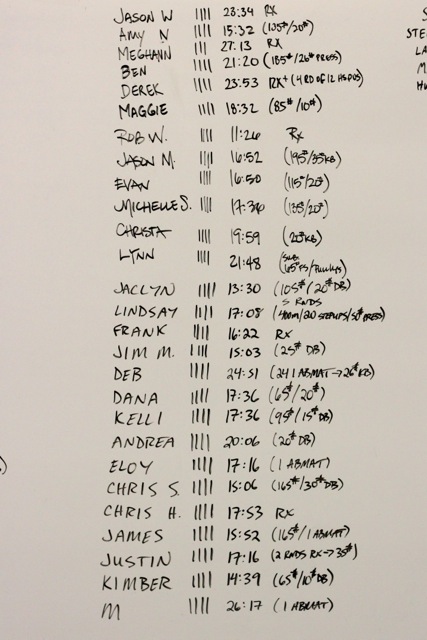 JASON W |||| 23:34 RX
AMY N |||| 15:32 (105#/20#)
MEGHANN |||| 27:13 RX
BEN |||| 21:20 (185#/26# PRESS)
DEREK |||| 23:53 RX+ (4 RD OF 12 HSPUS)
MAGGIE |||| 18:32 (85#/10#)
ROB W. |||| 11:26 RX
JASON M. |||| 16:52 (195#/35KB)
EVAN |||| 16:50 (115#/20#)
MICHELLE S. |||| 17:36 (135#/20#)
CHRISTA |||| 19:59 (20#KB)
LYNN |||| 21:48 (SUB 65#FS/PULLUPS)
JACLYN |||| 13:30 (105#/20# DB)
LINDSAY |||| 17:08 5 RNDS (400m/20 STEPUPS/50# PRESS)
FRANK |||| 16:22 RX
JIM M. |||| 15:03 (25# DB)
DEB |||| 24:51 (24 1 ABMAT→26# KB)
DANA |||| 17:36 (65#/20#)
KELLI |||| 17:36 (95#/15# DB)
ANDREA |||| 20:06 (20# DB)
ELOY |||| 17:16 (1 ABMAT)
CHRIS S. |||| 15:06 (165#/30# DB)
CHRIS H. |||| 17:53 RX
JAMES |||| 15:52 (165#/1 ABMAT)
JUSTIN |||| 17:16 (2 RNDS RX→35#)
KIMBER |||| 14:39 (65#/10# DB)
M |||| 26:17 (1 ABMAT)
S
STE
LA
M